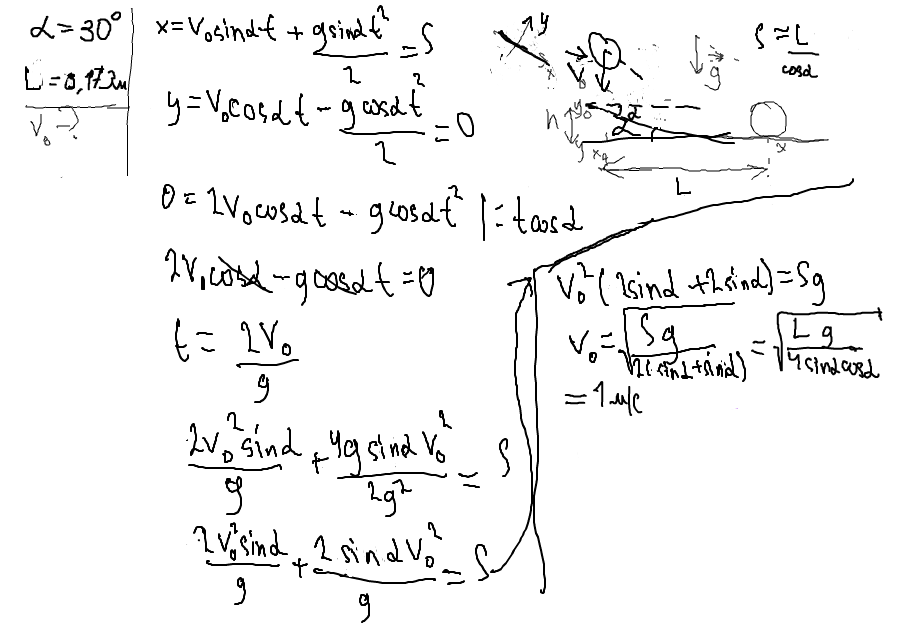 α = 30°
L = 0,173м
V₀ - ?
x = V₀sinαt + gsinαt²/2 = S
y = V₀cosαt - gcosαt²/2 = 0
0 = 2V₀cosαt - gcosαt² | : tcosα
2V₀cosα - gcosαt = 0
t = 2V₀/g
2V₀²sinα/g + 4gsinαV₀²/2g² = S
2V₀²sinα/g + 2sinαV₀²/g = S
y
x
V₀
g
S = L/cosα
h
y₀
2α
α
y
x₀
x
L
V₀²(2sinα + 2sinα) = Sg
V₀ = √(Sg/2(sinα + sinα)) = √(Lg/4sinαcosα)
= 1 м/с